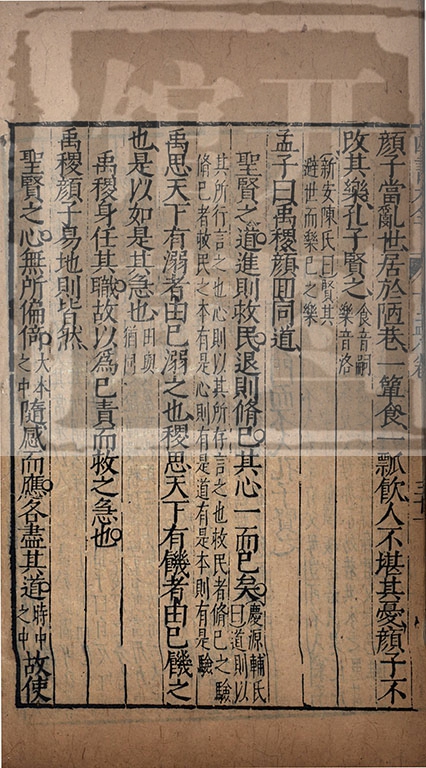 顔子當亂世居於陋巷一簞食一瓢飲人不堪其憂顔子不
改其樂孔子賢之食音嗣樂音洛
新安陳氏曰賢其避世而樂已之樂
孟子曰禹稷顔囘同道
聖賢之道進則救民退則脩已其心一而已矣慶源輔氏曰道則以
其所行言之也心則以其所存言之也救民者脩已之驗
脩已者救民之本有是心則有是道有是本則有是驗
禹思天下有溺者由已溺之也稷思天下有饑者由已饑之
也是以如是其急也由與猶同
禹稷身任其職故以為已責而救之急也
禹稷顔子易地則皆然
聖賢之心無所偏倚大本之中隨感而應各盡其道時中之中故使